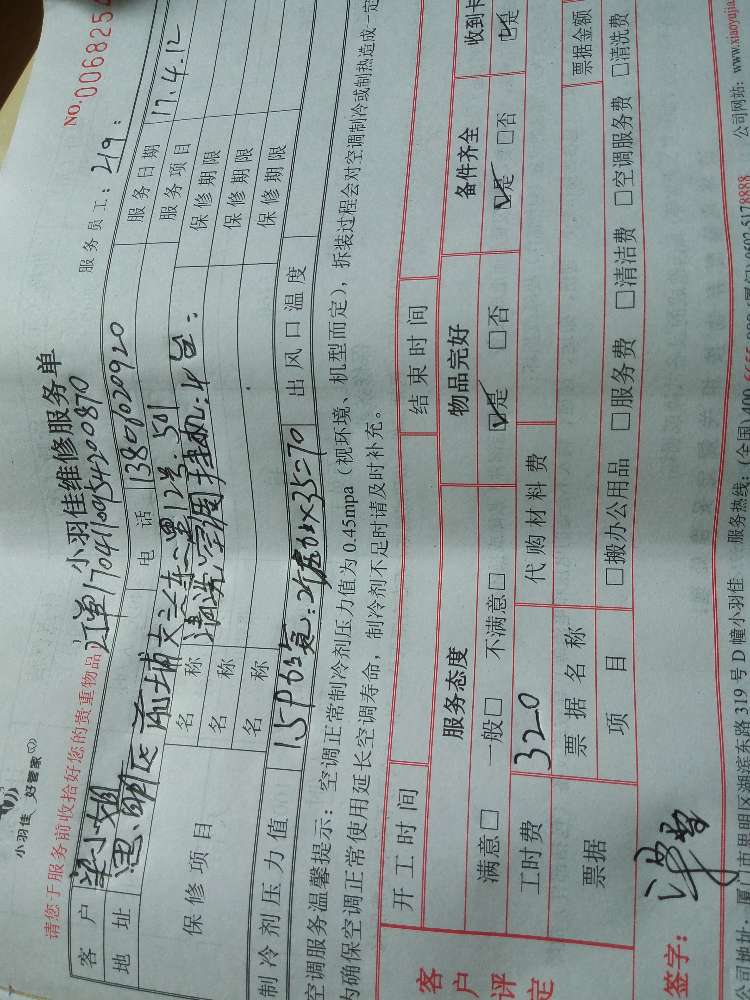 小羽佳 好管家
请您于服务前收拾好您的贵重物品
小羽佳维修服务单
NO. 0068254
订单1704160954200870
服务员工：219：
客户 梁小姐 电话 13806020920 服务日期 17.4.12
地址 思明区前埔文兴东二里12号501 服务项目
保修项目 名称 清洗空调挂机：4台. 保修期限
名称 保修期限
名称 保修期限
制冷剂压力值 出风口温度
空调服务温馨提示：空调正常制冷剂压力值为 0.45mpa（视环境、机型而定），拆装过程会对空调制冷或制热造成一定
为确保空调正常使用延长空调寿命，制冷剂不足时请及时补充。
开工时间 结束时间
客户评定
服务态度 物品完好 备件齐全 收到卡
满意□ 一般□ 不满意□ ☑是 □否 ☑是 □否 ☑是
工时费 320 代购材料费
票据 票据名称 票据金额
项目 □搬办公用品 □服务费 □清洁费 □空调服务费 □清洗费
签字：
公司地址：厦门市思明区湖滨东路 319 号 D 幢小羽佳 服务热线：(全国)400 0592-5178888 公司网站：www.xiaoyujia